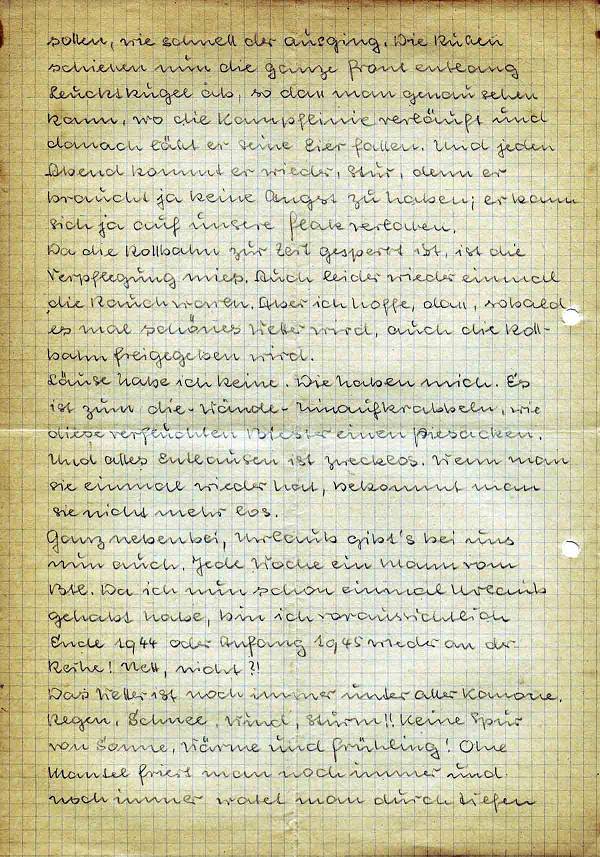 sollen, wie schnell der ausging. Die Russen
schießen nun die ganze Front entlang
Leuchtkugel ab, so dass man genau sehen
kann, wo die Kampflinie verläuft und
danach läßt er seine Eier fallen. Und jeden
Abend kommt er wieder, stur, denn er
braucht ja keine Angst zu haben; er kann
sich ja auf unsere Flak verlassen.
Da die Rollbahn zur Zeit gesperrt ist, ist die
Verpflegung mies. Auch leider wieder einmal
die Rauchwaren. Aber ich hoffe, dass, sobald
es mal schönes Wetter wird, auch die Roll-
bahn freigegeben wird.
Läuse habe ich keine. Die haben mich. Es
ist zum die-Wände-hinaufkrabbeln, wie
diese verfluchten Biester einen piesacken.
Und alles Entlausen ist zwecklos. Wenn man
sie einmal wieder hat, bekommt man
sie nicht mehr los.
Ganz nebenbei, Urlaub gibt's bei uns
nun auch. Jede Woche ein Mann vom
Btl. Da ich nun schon einmal Urlaub
gehabt habe, bin ich voraussichtlich
Ende 1944 oder Anfang 1945 wieder an der
Reihe! Nett, nicht?!
Das Wetter ist noch immer unter aller Kanone.
Regen, Schnee, Wind, Sturm!! Keine Spur
von Sonne, Wärme und Frühling! Ohne
Mantel friert man noch immer und
noch immer watet man durch tiefen